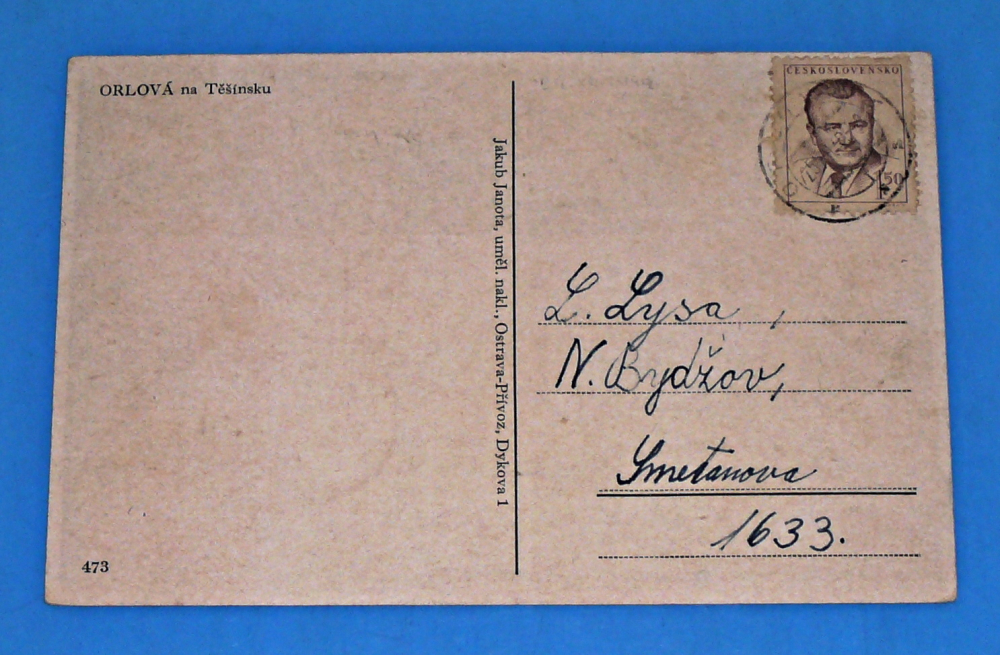 ORLOVÁ na Těšínsku
Jakub Janota, uměl. nakl., Ostrava-Přívoz, Dykova 1
473
ČESKOSLOVENSKO
1.50
L. Lysa,
N. Bydžov,
Smetanova
1633.